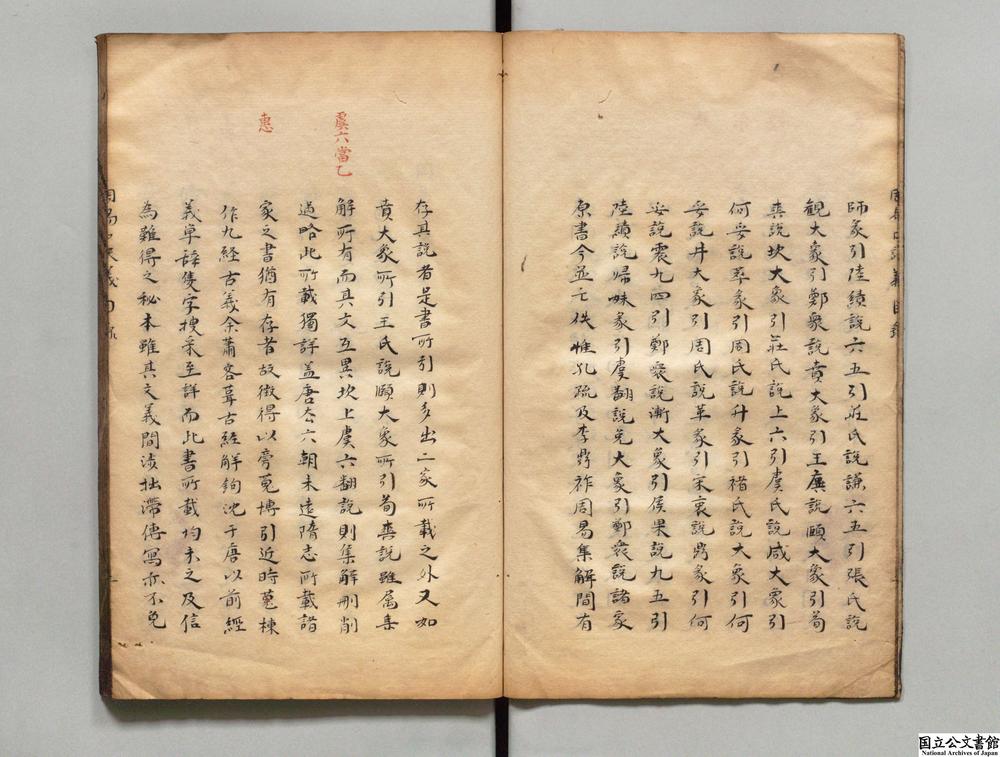 師彖引陸績說六五引莊氏說謙六五引張氏說
觀大象引鄭衆說賁大象引王廙說頤大象引荀
爽說坎大象引莊氏說上六引虞氏說咸大象引
何妥說萃彖引周氏說升彖引禇氏說大象引何
妥說井大象引周氏說革彖引宋衷說鼎彖引何
妥說震九四引鄭衆說漸大象引侯果說九五引
陸績說歸妹彖引虞翻說兌大象引鄭衆說諸家
原書今並亡佚惟孔疏及李鼎祚周易集解間有
存其說者是書所引則多出二家所載之外又如
賁大象所引王氏說頤大象所引荀爽說雖屬集
解所有而其文互異坎上虞六翻說則集解刪削
過略此所載獨詳盖唐去六朝未遠隋志所載諸
家之書猶有存者故徴得以旁蒐博引近時蒐棟
作九經古義余蕭客葺古經解鉤沈于唐以前經
義單辭隻字搜采至詳而此書所載均未之及信
為難得之秘本雖其文義間涉拙滯傳寫亦不免
虞六當乙
惠
国立公文書館
National Archives of Japan